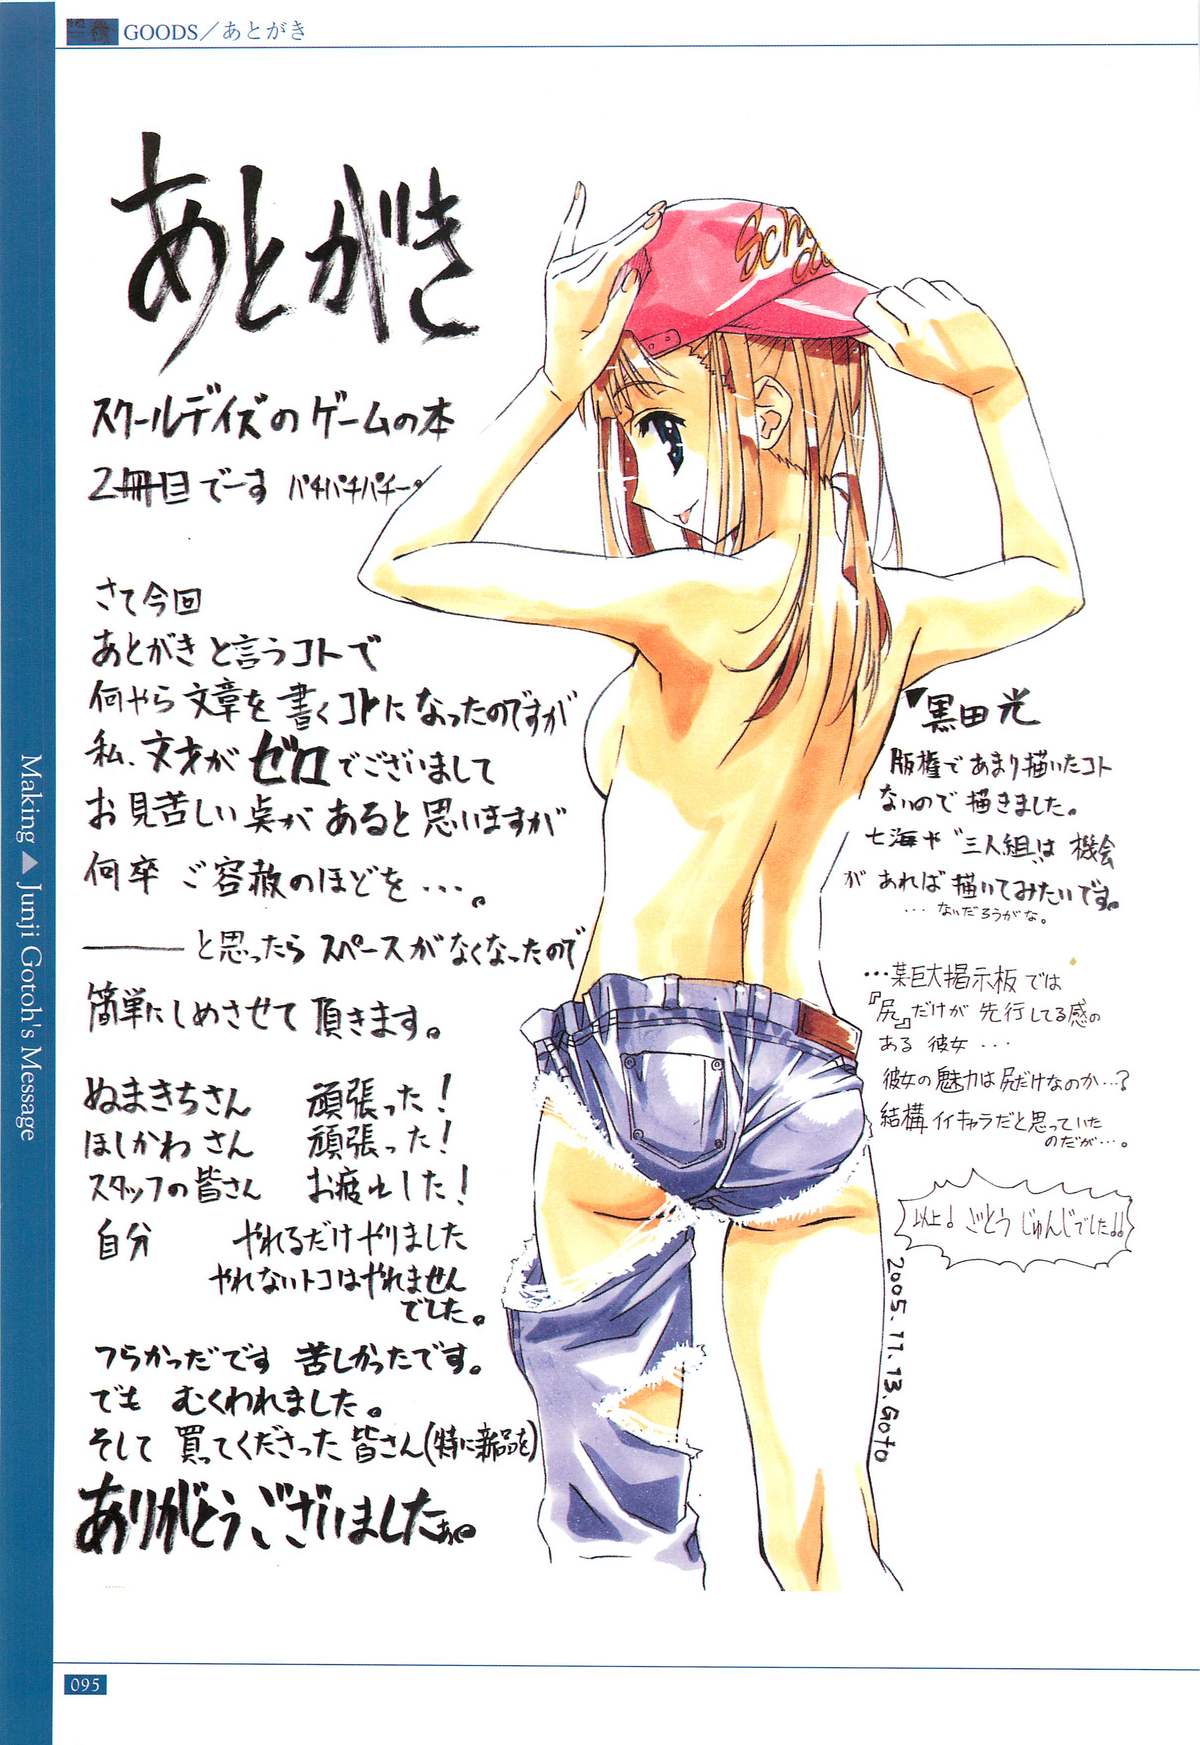 GOODS／あとがき
あとがき
スクールデイズのゲームの本
2冊目でーす パチパチパチー
さて今回
あとがきと言うコトで
何やら文章を書くコトになったのですが
私、文才がゼロでございまして
お見苦しい点があると思いますが
何卒 ご容赦のほどを・・・。
――と思ったらスペースがなくなったので
簡単にしめさせて頂きます。
ぬまきちさん 頑張った！
ほしかわさん 頑張った！
スタッフの皆さん お疲れした！
自分 やれるだけやりました
やれないトコはやれません
でした。
つらかっだです 苦しかったです。
でも むくわれました。
そして 買ってくださった皆さん(特に新品を)
ありがとうございましたぁ。
黒田光
版権であまり描いたコト
ないので描きました。
七海や"三人組"は機会
があれば描いてみたいです。
・・・ないだろうがな。
・・・某巨大掲示板では
『尻』だけが先行してる感の
ある彼女・・・
彼女の魅力は尻だけなのか・・・？
結構イイキャラだと思っていた
のだが・・・。
以上！ごとうじゅんじでした!!
2005.11.13.Goto
Making ▲ Junji Gotoh's Message
095